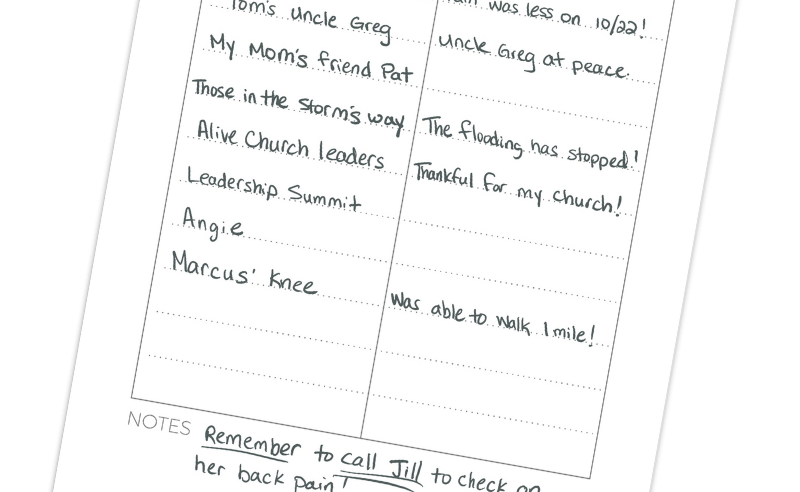 Tom's uncle Greg
was less on 10/22!
My Mom's friend Pat
Uncle Greg at peace.
Those in the storm's way
The flooding has stopped!
Alive Church leaders
Thankful for my church!
Leadership Summit
Angie
Marcus' Knee
Was able to walk 1 mile!
NOTES Remember to call Jill to check on
her back pain!